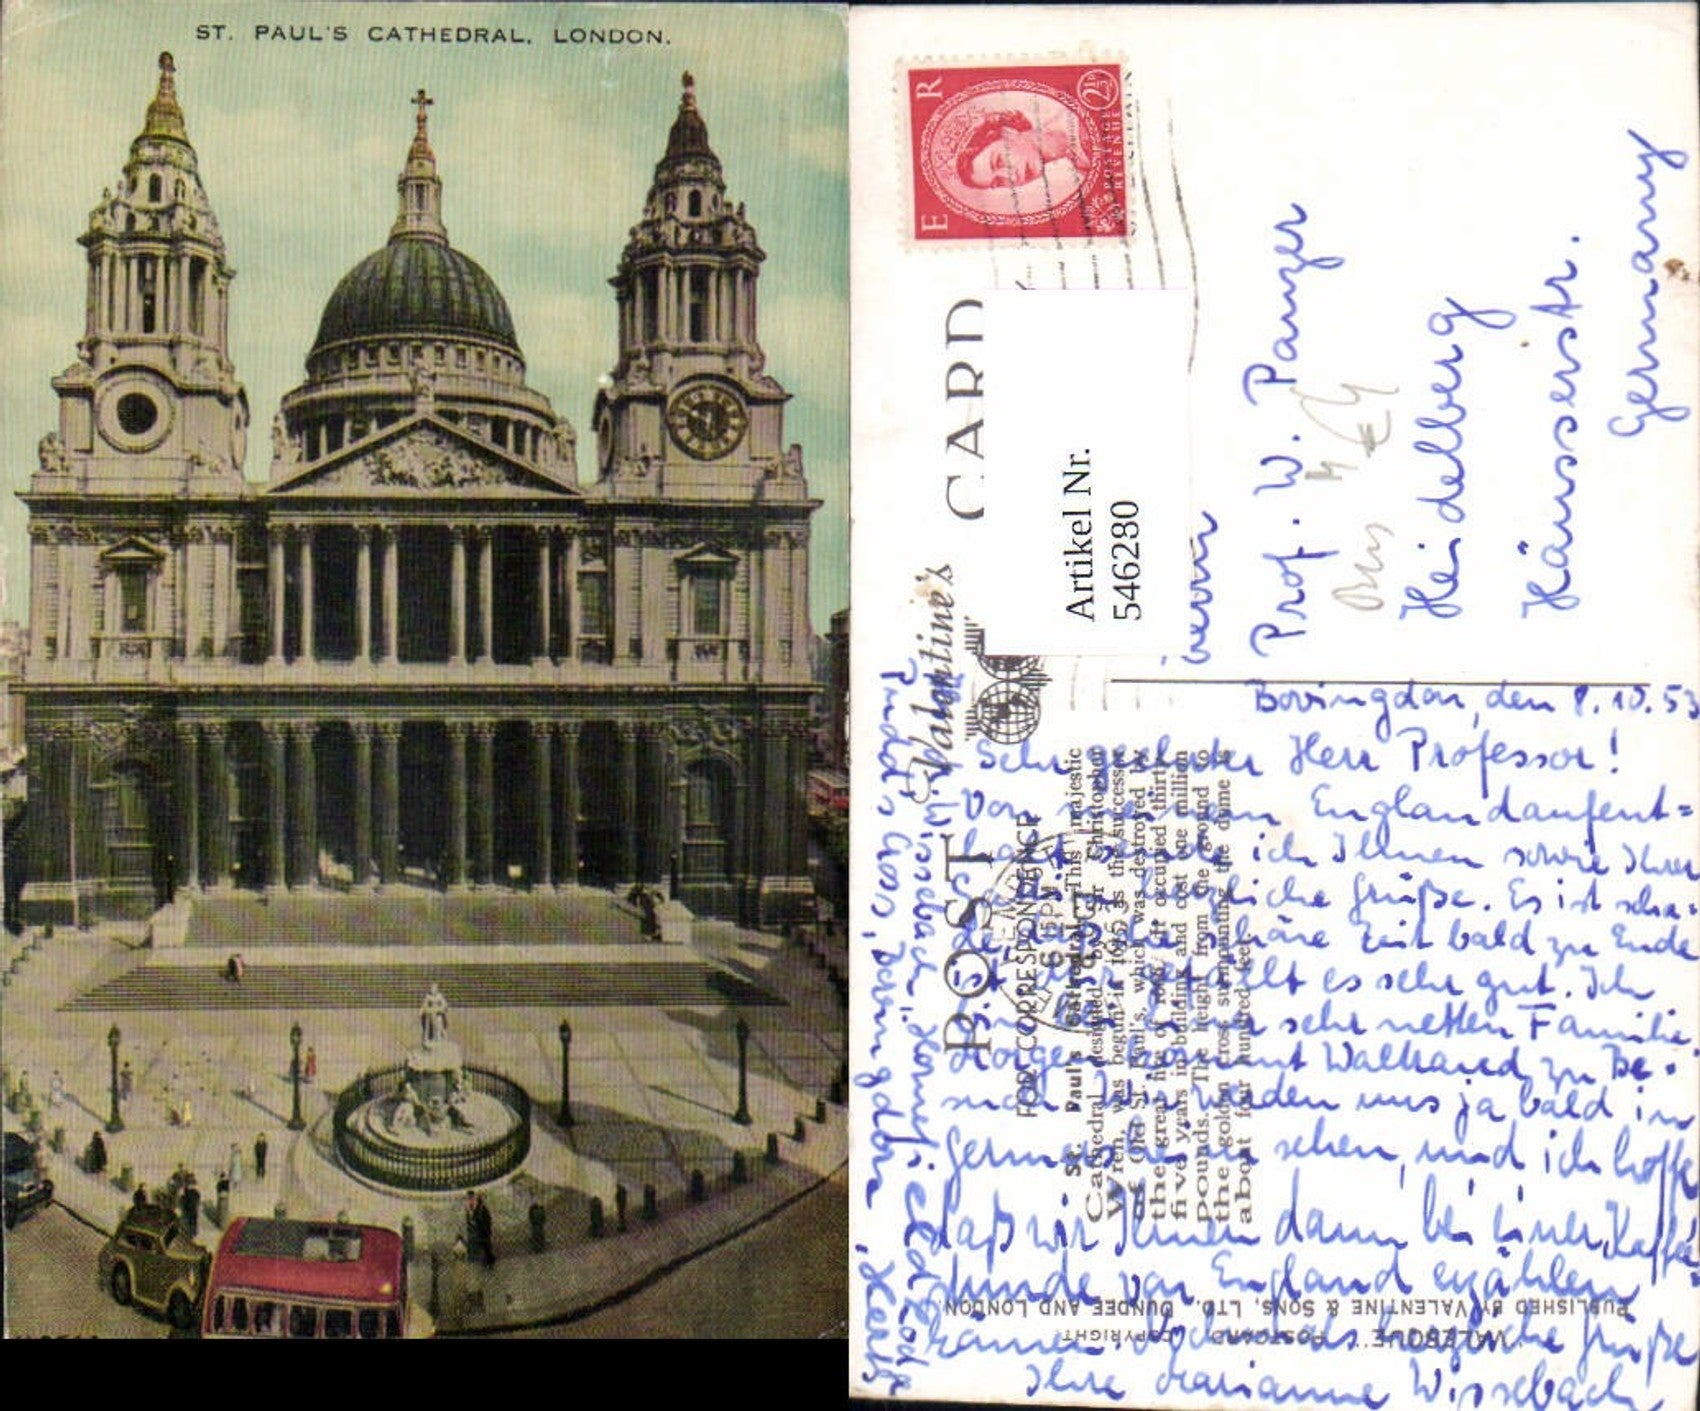 ST. PAUL'S CATHEDRAL, LONDON.
E R
POSTAGE
REVENUE
2½D
POST CARD
Valentine's
Artikel Nr.
546280
FOR CORRESPONDENCE
St. Paul's Cathedral. This majestic
Cathedral, designed by Sir Christopher
Wren, was begun in 1675 as the successor
of Old St. Paul's, which was destroyed by
the great fire of 1666. It occupied thirty-
five years in building and cost one million
pounds. The height from the ground to
the golden cross surmounting the dome is
about four hundred feet.
"VALESQUE" POSTCARD COPYRIGHT
PUBLISHED BY VALENTINE & SONS, LTD., DUNDEE AND LONDON
Prof. W. Panzer
Heidelberg
Häusserstr.
Germany
Bovingdon, den 8.10.53
Sehr geehrter Herr Professor!
Von meinem Englandaufent=
halt sende ich Ihnen sowie Ihrer
herzliche Grüße. Es ist scha=
de, daß die schöne Zeit bald zu Ende
ist. Mir gefällt es sehr gut. Ich
bin bei einer sehr netten Familie.
Morgen kommt Waltraud zu Be=
such. Wir werden uns ja bald in
Germany sehen, und ich hoffe
daß wir Ihnen dann bei einer Kaffee=
stunde von England erzählen
können. Nochmals herzliche Grüße
Ihre Marianne Wisselbach
Wisselbach,
Bovingdon, Herts